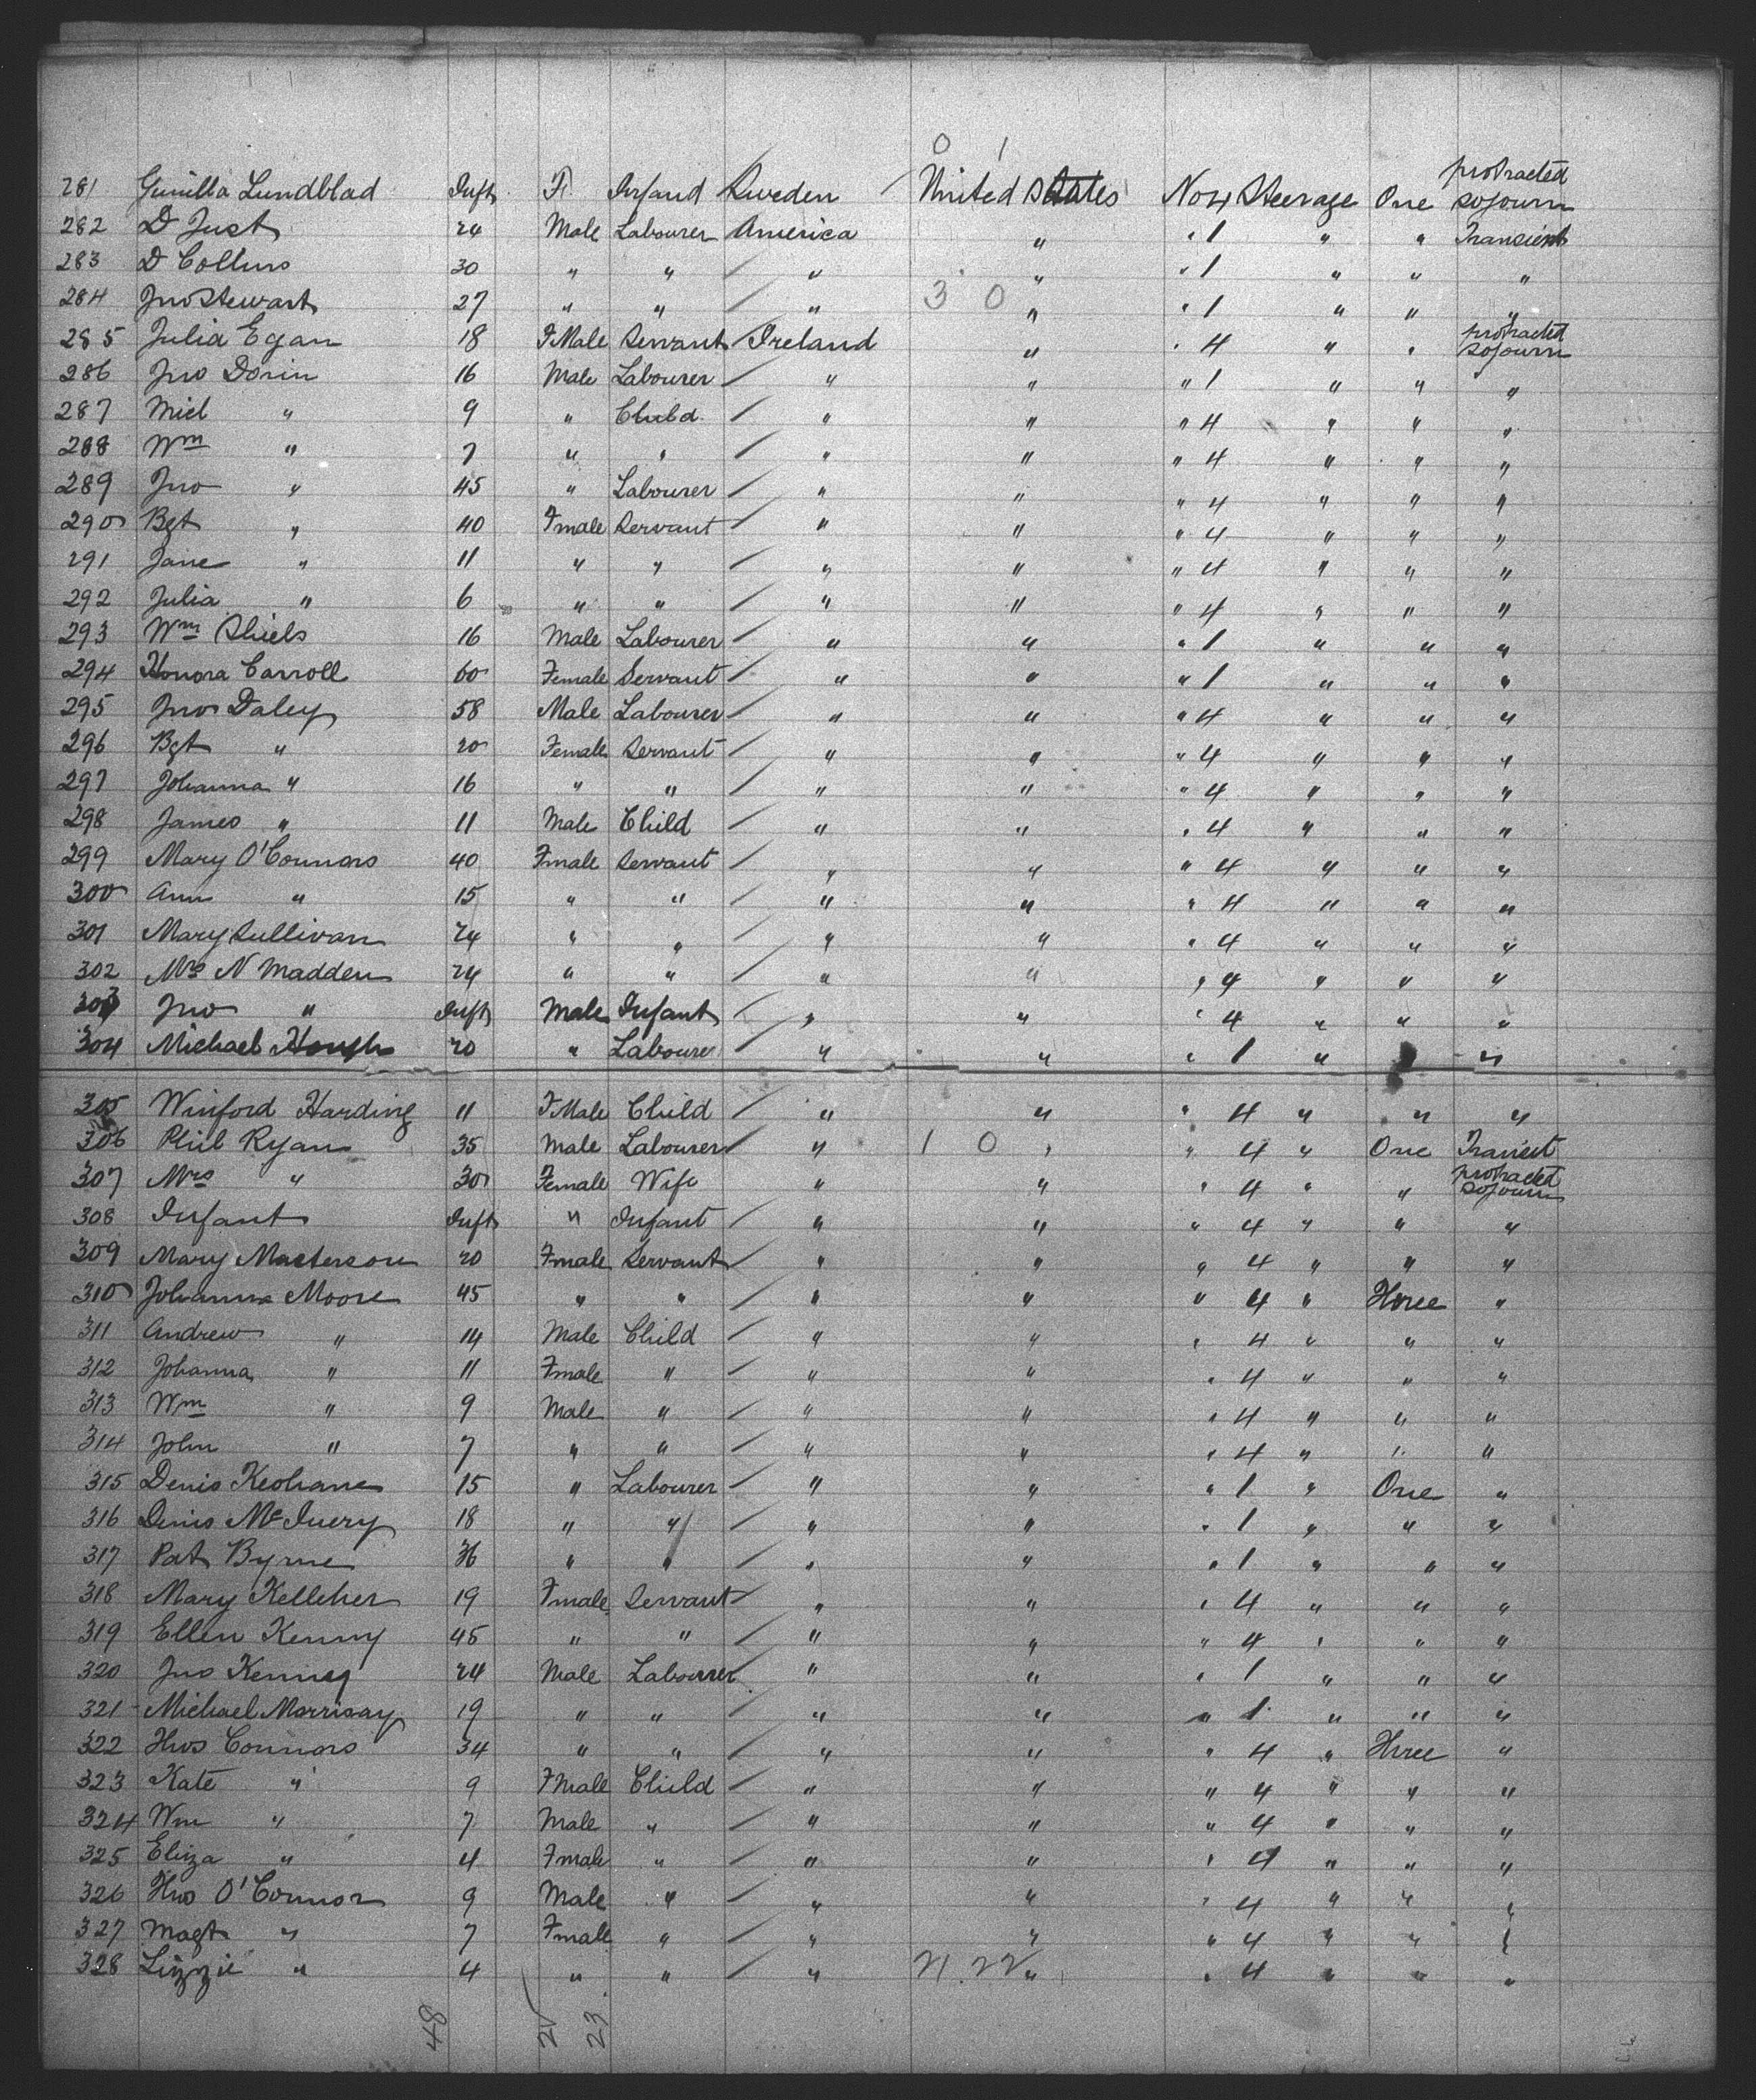 0 1
281 Gunilla Lundblad Inft F Infand Sweden United States No 4 Steerage One protracted sojourn
282 D Just 24 Male Labourer America " " 1 " " Transient
283 D Collins 30 " " " " " 1 " " "
284 Jno Stewart 27 " " " 3 0 " " 1 " " "
285 Julia Egan 18 FMale Servant Ireland " " 4 " " protracted sojourn
286 Jno Dorin 16 Male Labourer " " " 1 " " "
287 Micl " 9 " Child " " " 4 " " "
288 Wm " 7 " " " " " 4 " " "
289 Jno " 45 " Labourer " " " 4 " " "
290 Bgt " 40 Fmale Servant " " " 4 " " "
291 Jane " 11 " " " " " 4 " " "
292 Julia " 6 " " " " " 4 " " "
293 Wm Shiels 16 Male Labourer " " " 1 " " "
294 Honora Carroll 60 Female Servant " " " 1 " " "
295 Jno Daley 58 Male Labourer " " " 4 " " "
296 Bgt " 20 Female Servant " " " 4 " " "
297 Johanna " 16 " " " " " 4 " " "
298 James " 11 Male Child " " " 4 " " "
299 Mary O'Connors 40 Fmale Servant " " " 4 " " "
300 Ann " 15 " " " " " 4 " " "
301 Mary Sullivan 24 " " " " " 4 " " "
302 Mrs N Madden 24 " " " " " 4 " " "
303 Jno " Inft Male Infant " " " 4 " " "
304 Michael Hough 20 " Labourer " " " 1 " "
305 Winford Harding 11 FMale Child " " " 4 " " "
306 Phil Ryan 35 Male Labourer " 1 0 " " 4 " One Transient
307 Mrs " 30 Female Wife " " " 4 " " protracted sojourn
308 Infant Inft " Infant " " " 4 " " "
309 Mary Masterson 20 Fmale Servant " " " 4 " " "
310 Johanna Moore 45 " " " " " 4 " Three "
311 Andrew " 14 Male Child " " " 4 " " "
312 Johanna " 11 Fmale " " " " 4 " " "
313 Wm " 9 Male " " " " 4 " " "
314 John " 7 " " " " " 4 " " "
315 Denis Keohane 15 " Labourer " " " 1 " One "
316 Denis McInery 18 " " " " " 1 " " "
317 Pat Byrne 36 " " " " " 1 " " "
318 Mary Kelleher 19 Fmale Servant " " " 4 " " "
319 Ellen Kenny 45 " " " " " 4 " " "
320 Jno Kenny 24 Male Labourer " " " 1 " " "
321 Michael Morrisay 19 " " " " " 1 " " "
322 Thos Connors 34 " " " " " 4 " Three "
323 Kate " 9 FMale Child " " " 4 " " "
324 Wm " 7 Male " " " " 4 " " "
325 Eliza " 4 Fmale " " " " 4 " " "
326 Thos O'Connor 9 Male " " " " 4 " " "
327 Magt " 7 Fmale " " " " 4 " " "
328 Lizzie " 4 " " " 21.22 " " 4 " " "
48 25 23